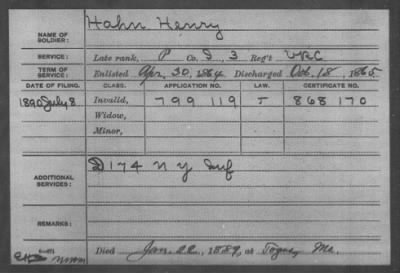 Hahn Henry
NAME OF SOLDIER:
SERVICE: Late rank, P Co. I, 3 Reg't VRC
TERM OF SERVICE: Enlisted Apr. 30, 1864 Discharged Oct. 18, 1865
DATE OF FILING. CLASS. APPLICATION NO. LAW. CERTIFICATE NO.
1890 July 8 Invalid, 799 119 J 868 170
Widow,
Minor,
ADDITIONAL SERVICES: D 174 N Y Inf
REMARKS:
Died Jan. 1889, at Togus, Me.